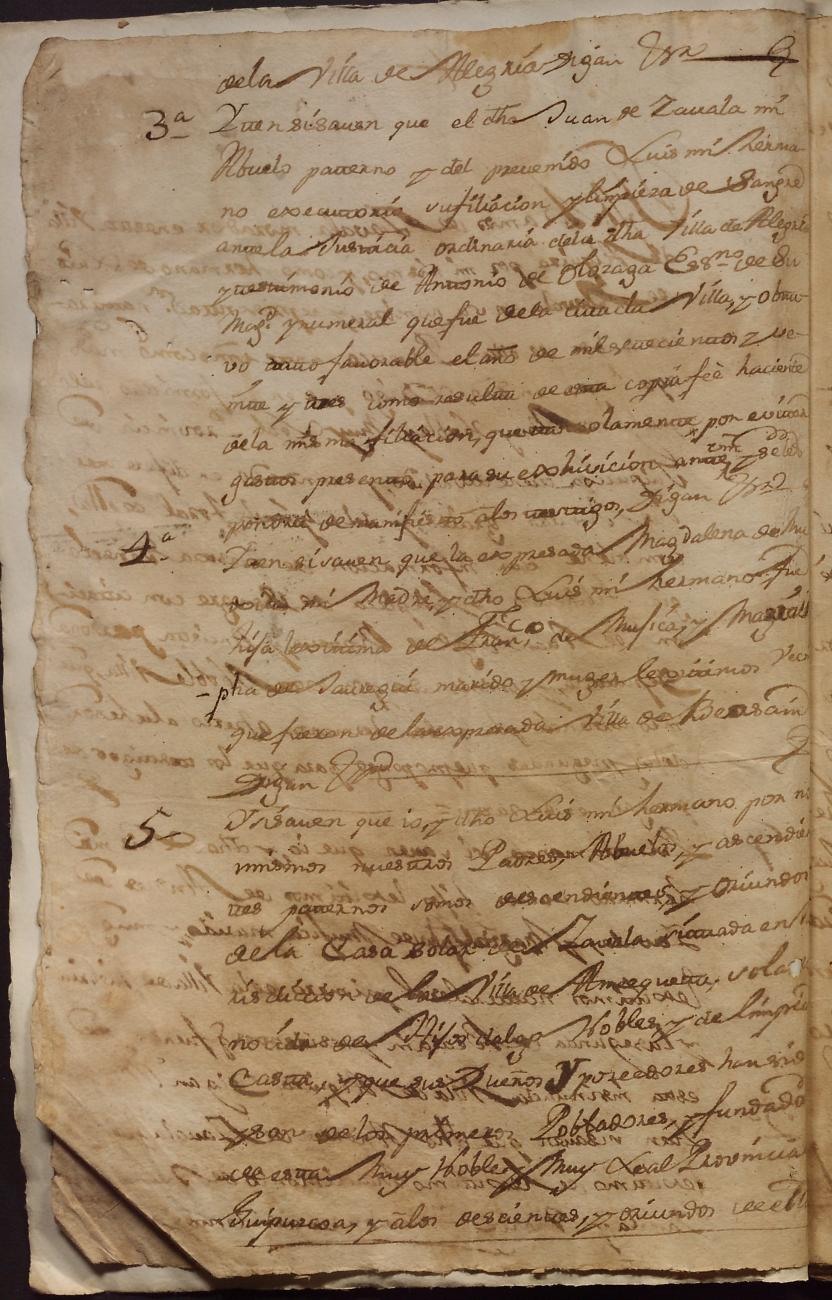 dela Villa de Alegria digan &ra
3ª Yten si saven que el dho Juan de Zavala mi
Abuelo paterno y del prevenido Luis mi herma-
no executorió su filiacion y limpieza de Sangre
ante la Justicia ordinaria dela dha Villa de Alegri
y testimonio de Antonio de Olozaga Essno de Su
Magd y numeral que fue de la citada Villa, y obtu-
vo auto favorable el año de mil setecientos y ve-
inte y tres como resulta de esta copia feè haciente
dela misma filiacion, que tan solamente por evitar
gastos presento para su exhivicion ante
pondrá de manifiesto alos testigos, Digan &ra
4ª Yten si saven, que la expresada Magdalena de Mu
mi Madre, y dho Luis mi hermano fue
hija lexitima de Franco de Musica, y Magda
-lena de Jauregui marido y muger lexitimos veci
que fueron dela expresada Villa de Beasain
Digan &ra
5 Y si saven que io, y dho Luis mi hermano por
mismos nuestros Padres, Abuelos, y ascendien
tes paternos somos descendientes, y oriundos
de la Casa Solar de Zavala situada en
risdiccion de la Villa de Amezqueta, solar
notorio de Hijos dalgo Nobles, y de limpia
Casta, y que sus Dueños y poseedores han sido
y son de los primeros Pobladores, y fundado
de esta Muy Noble y Muy Leal Provincia
Guipuzcoa, y alos descientes, y oriundos de ella